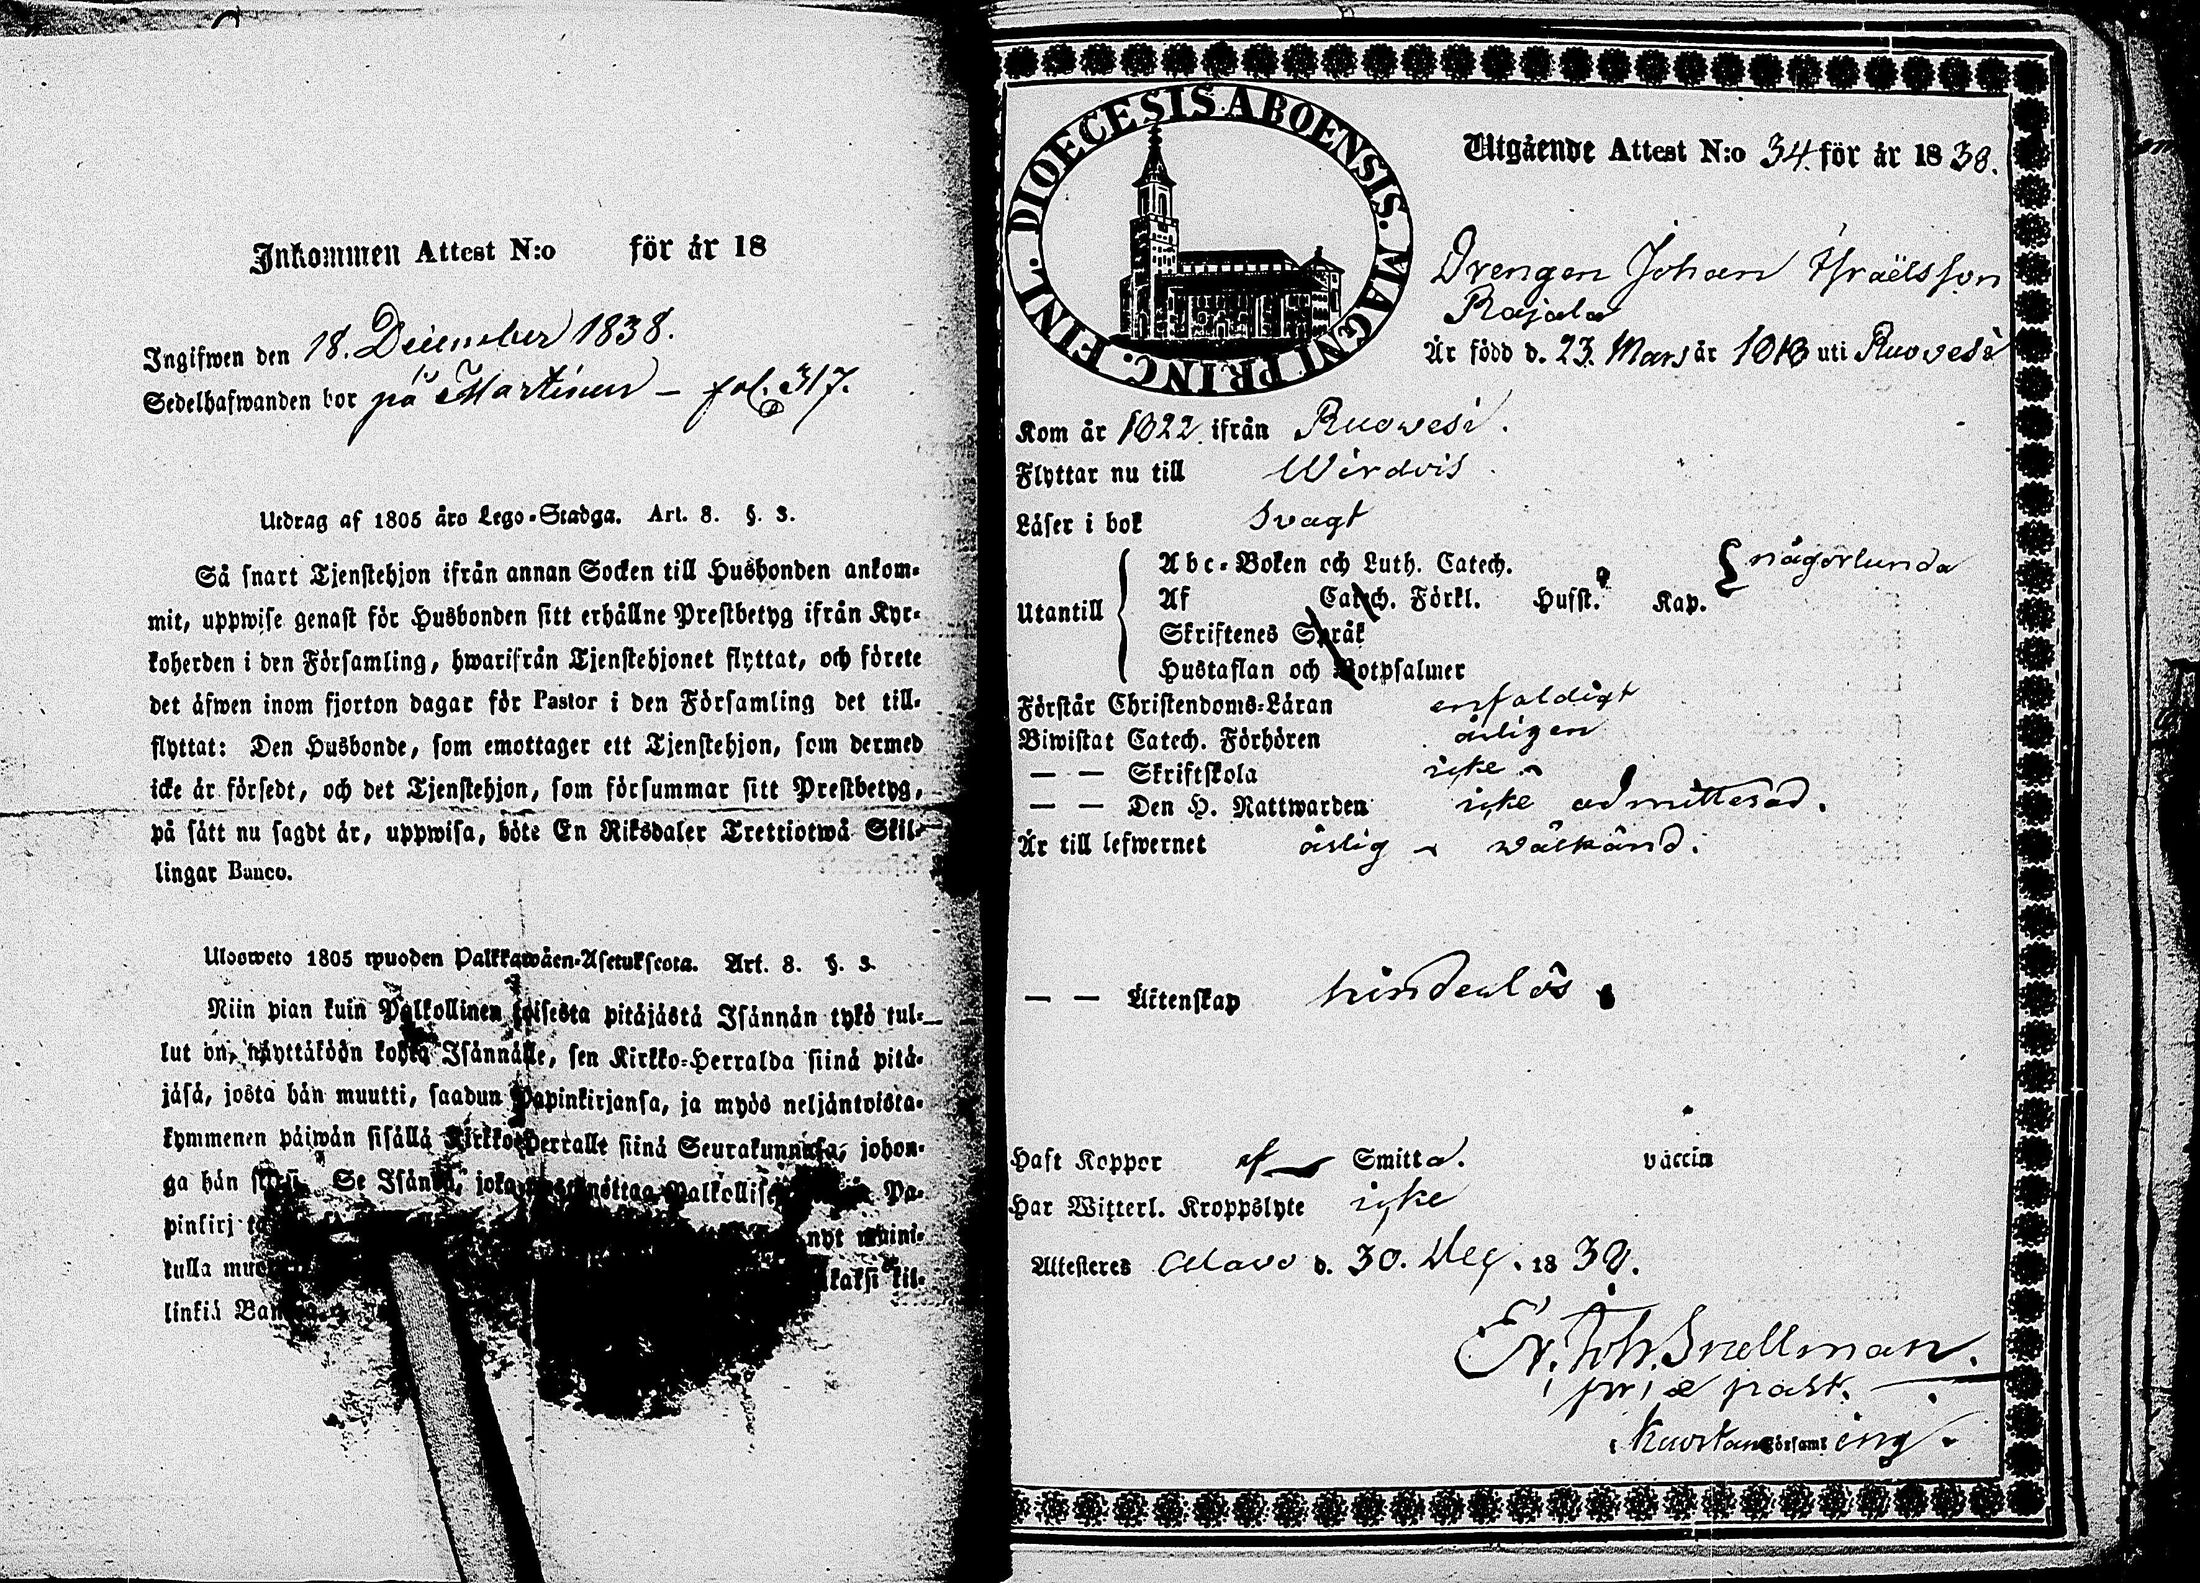 Inkommen Attest N:o för år 18
Ingifwen den 18. December 1838.
Sedelhafwanden bor på Martinen – fol. 317.
Utdrag af 1805 års Lego-Stadga. Art. 8. §. 3.
Så snart Tjenstehjon ifrån annan Socken till Husbonden ankom-
mit, uppwise genast för Husbonden sitt erhållne Prestbetyg ifrån Kyr-
koherden i den Församling, hwarifrån Tjenstehjonet flyttat, och förete
det äfwen inom fjorton dagar för Pastor i den Församling det till-
flyttat: Den Husbonde, som emottager ett Tjenstehjon, som dermed
icke är försedt, och det Tjenstehjon, som försummar sitt Prestbetyg,
på sätt nu sagdt är, uppwisa, böte En Riksdaler Trettiotwå Skil-
lingar Banco.
Uloosweto 1805 wuoden Palkkawäen-Asetuksesta. Art. 8. §. 3.
Niin pian kuin Palkollinen toisesta pitäjästä Isännän tykö tul-
lut on, näyttäköön kohta Isännälle, sen Kirkko-Herralda siinä pitä-
jäsä, josta hän muutti, saadun Papinkirjansa, ja myös neljäntoista-
kymmenen päiwän sisällä Kirkko-Herralle siinä Seurakunnasa, johon-
ga hän siirsi. Se Isäntä, joka Palkollise Pa-
pinkirj nyt maini-
tulla kaksi kil-
linkiä Ban
DIOECESIS ABOENSIS. MAGNI PRINC. FINL.
Utgående Attest N:o 34. för år 1838.
Drengen Johan Israëlsson
Rajala
Är född d. 23. Mars år 1818 uti Ruovesi
Kom år 1822. ifrån Ruowesi.
Flyttar nu till Wirdois
Läser i bok Svagt
Utantill { Abc-Boken och Luth. Catech. { någorlunda
Af Catech. Förkl. Husst. Kap.
Skriftenes Språk
Hustaflan och Botpsalmer
Förstår Christendoms-Läran enfaldigt
Biwistat Catech. Förhören årligen
— — Skriftskola icke
— — Den H. Nattwarden icke admitterad.
Är till lefwernet ärlig o wälkänd.
— — Äktenskap hinderlös
Haft Koppor af Smitta. vaccin
Har Witterl. Kroppslyte icke
Attesteres Alavo d. 30. 1838.
Er. Joh. Snellman.
past.
i Kuortane Församling.